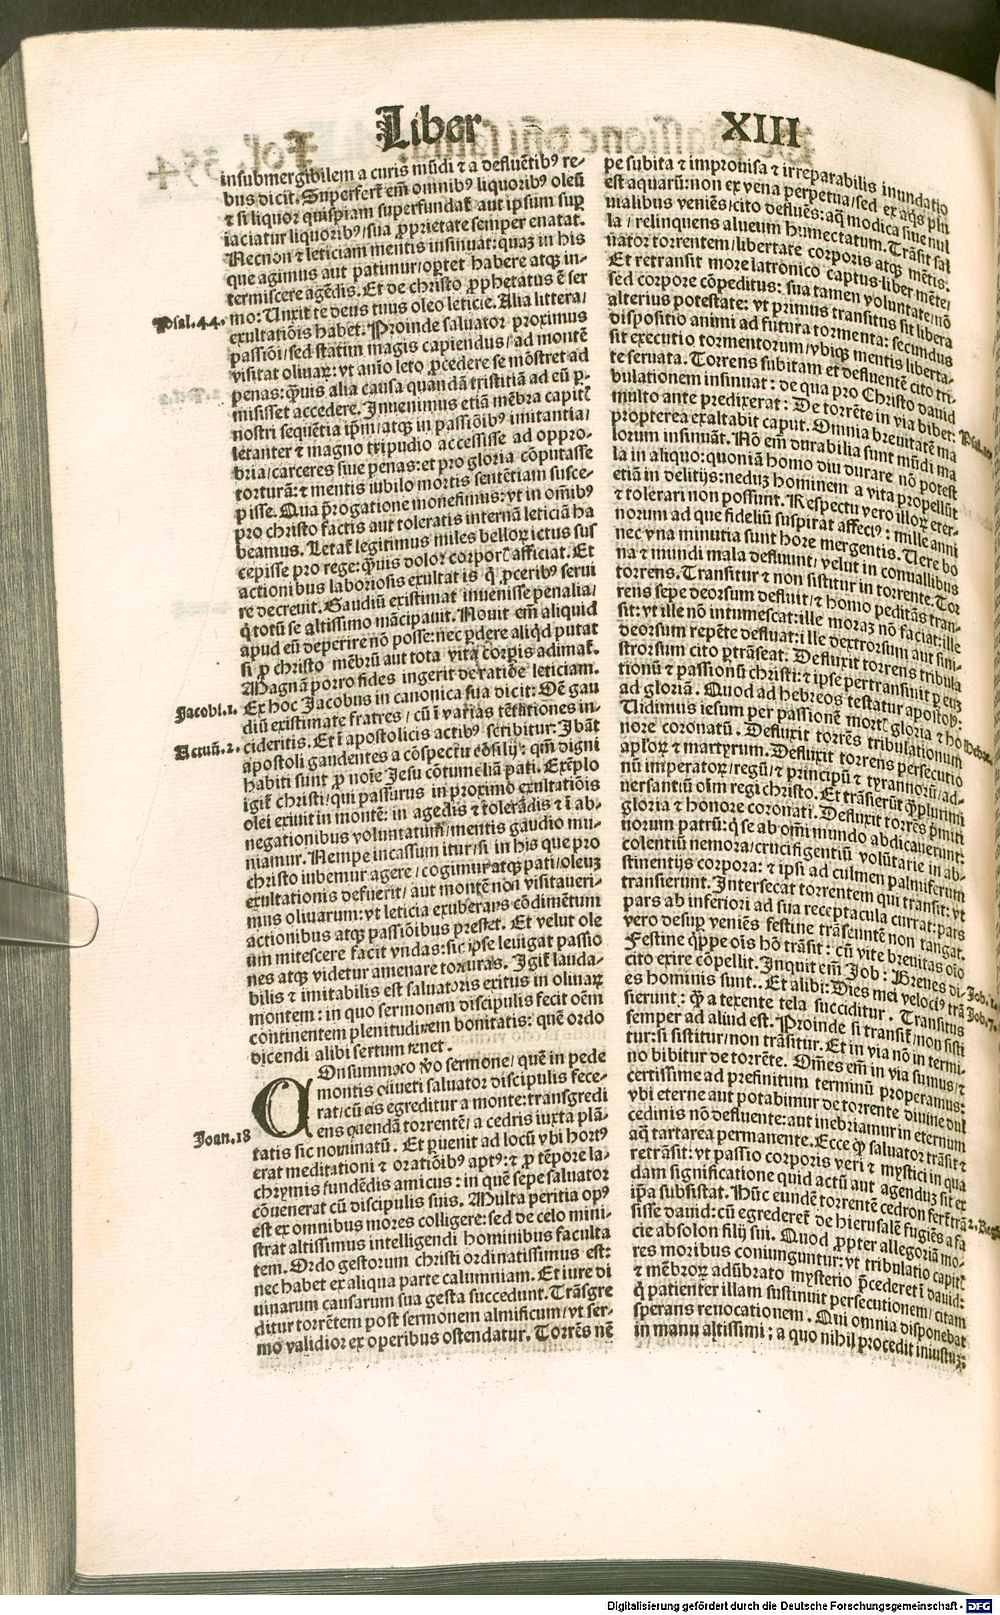 Liber XIII
insubmergibilem a curis mūdi ⁊ a defluētibꝰ re-
bus dicit. Superfert em̄ omnibꝰ liquoribꝰ oleū
⁊ si liquor quispiam superfundat aut ipsum suꝑ
iaciatur liquoribꝰ/sua ꝓprietate semper enatat.
Necnon ⁊ leticiam mentis insinuat: quaꝫ in his
que agimus aut patimur/oꝑtet habere atqꝫ in-
termiscere agēdis. Et de christo ꝓphetatus ē ser
Psal.44. mo: Unxit te deus tuus oleo leticie. Alia littera/
exultatiōis habet. Proinde saluator proximus
passiōi/sed statim magis capiendus/ad montē
visitat oliuaꝝ: vt anīo leto ꝓcedere se mōstret ad
penas: qͣuis alia causa quandā tristitiā ad eū ꝑ-
misisset accedere. Inuenimus etiā mēbra capitꝭ
nostri sequētia ip̄m/atqꝫ in passiōibꝰ imitantia/
letanter ⁊ magno tripudio accessisse ad oppro-
bria/carceres siue penas: et pro gloria cōputasse
torturā: ⁊ mentis iubilo mortis sentētiam susce-
pisse. Qua p̄rogatione monefimus: vt in om̄ibꝰ
pro christo factis aut toleratis internā leticiā ha
beamus. Letat legitimus miles belloꝝ ictus sus
cepisse pro rege: qͣuis dolor corporꝭ afficiat. Et
actionibus laboriosis exultat is q̄ ꝓceribꝰ serui
re decreuit. Gaudiū existimat inuenisse penalia/
q̄ totū se altissimo mācipauit. Nouit em̄ aliquid
apud eū deperire nō posse: nec ꝑdere aliqd putat
si ꝓ christo mēbrū aut tota vita corꝑis adimat.
Magnā porro fides ingerit de ratiōe leticiam.
Jacobi.1. Ex hoc Jacobus in canonica sua dicit: Om̄e gau
diū existimate fratres/cū ī varias tētatiōnes in-
Actuū.2. cideritis. Et ī apostolicis actibꝰ scribitur: Ibāt
apostoli gaudentes a cōspectu cōsilij: qm̄ digni
habiti sunt ꝓ noīe Jesu cōtumeliā pati. Exēplo
igit christi/qui passurus in proximo exultatiōis
olei exiuit in montē: in agēdis ⁊ tolerādis ⁊ ī ab-
negationibus voluntatum/mentis gaudio mu-
niamur. Nempe incassum itur/si in his que pro
christo iubemur agere/cogimur atqꝫ pati/oleuꝫ
exultationis defuerit/aut montē non visitaueri-
mus oliuarum: vt leticia exuberans cōdimētum
actionibus atqꝫ passiōibus prestet. Et velut ole
um mitescere facit vndas: sic ipse leuigat passio
nes atqꝫ videtur amenare torturas. Igit lauda-
bilis ⁊ imitabilis est saluatoris exitus in oliuaꝝ
montem: in quo sermonem discipulis fecit oēm
continentem plenitudinem bonitatis: quē ordo
dicendi alibi sertum tenet.
COnsummato v̄o sermone/quē in pede
montis oliueti saluator discipulis fece-
rat/cū eis egreditur a monte: transgredi
Joan.18 ens quendā torrentē/a cedris iuxta plā-
tatis sic nominatū. Et ꝑuenit ad locū vbi hortꝰ
erat meditationi ⁊ oratiōibꝰ aptꝰ: ⁊ ꝓ tēpore la-
chrymis fundēdis amicus: in quē sepe saluator
cōuenerat cū discipulis suis. Multa peritia opꝰ
est ex omnibus mores colligere: sed de celo mini-
strat altissimus intelligendi hominibus faculta
tem. Ordo gestorum christi ordinatissimus est:
nec habet ex aliqua parte calumniam. Et iure di
uinarum causarum sua gesta succedunt. Trāsgre
ditur torrētem post sermonem almificum/vt ser-
mo validior ex operibus ostendatur. Torrēs nē
pe subita ⁊ improuisa ⁊ irreparabilis inundatio
est aquarū: non ex vena perpetua/sed ex aq̄s plu
uialibus veniēs/cito defluēs: aq̄ modica siue nul
la/relinquens alueum humectatum. Trāsit sal
uator torrentem/libertate corporis atqꝫ mētis.
Et retransit more latronico captus: liber mēte/
sed corpore cōpeditus: sua tamen voluntate/nō
alterius potestate: vt primus transitus sit libera
dispositio animi ad futura tormenta: secundus
sit executio tormentorum/vbiqꝫ mentis liberta-
te seruata. Torrens subitam et defluentē cito tri-
bulationem insinuat: de qua pro Christo dauid
multo ante predixerat: De torrēte in via bibet: Psal.10
propterea exaltabit caput. Omnia breuitatē ma
lorum insinuāt. Nō em̄ durabilia sunt mūdi ma
la in aliquo: quoniā homo diu durare nō potest
etiā in delitijs: neduꝫ hominem a vita propellūt
⁊ tolerari non possunt. Respectu vero illoꝝ eter-
norum ad que fideliū suspirat affectꝰ: mille anni
nec vna minutia sunt hore mergentis. Uere bo
na ⁊ mundi mala defluunt/velut in conuallibus
torrens. Transitur ⁊ non sistitur in torrente. Tor
rens sepe deorsum defluit/⁊ homo peditās tran-
sit: vt ille nō intumescat: ille moraꝫ nō faciat: ille
deorsum repēte defluat: ille dextrorsum aut sini-
strorsum cito ꝑtrāseat. Defluxit torrens tribula
tionū ⁊ passionū christi: ⁊ ipse pertransiuit ꝑ eūꝫ
ad gloriā. Quod ad hebreos testatur apostolꝰ:
Uidimus iesum per passionē mortꝭ gloria ⁊ ho Hebre.
nore coronatū. Defluxit torrēs tribulationum
ap̄loꝝ ⁊ martyrum. Defluxit torrens persecutio
nū imperatoꝝ/regū/⁊ principū ⁊ tyrannorū/ad-
uersantiū oīm regi christo. Et trāsierūt q̄plurimi
gloria ⁊ honore coronati. Defluxit torrēs p̄miti
norum patrū: q̄ se ab om̄i mundo abdicauerunt:
colentiū nemora/crucifigentiū volūtarie in ab-
stinentijs corpora: ⁊ ipsi ad culmen palmiferum
transierunt. Intersecat torrentem qui transit: vt
pars ab inferiori ad sua receptacula currat: pars
vero desuꝑ veniēs festine trāseuntē non tangat.
Festine q̄ppe oīs hō trāsit: cū vite breuitas oīo
cito exire cōpellit. Inquit em̄ Job: Breues di- Job.1
es hominis sunt.. Et alibi: Dies mei velociꝰ trā Job.7.
sierunt: q̄ a texente tela succiditur. Transitus
semper ad aliud est. Proinde si transit/non sisti
tur: si sistitur/non trāsitur. Et in via nō in termi-
no bibitur de torrēte. Om̄es em̄ in via sumus/⁊
certissime ad prefinitum terminū properamus:
vbi eterne aut potabimur de torrente diuine dul
cedinis nō defluente: aut inebriamur in eternum
aq̄ tartarea permanente. Ecce q̄ saluator trāsit ⁊
retrāsit: vt passio corporis veri ⁊ mystici in qua
dam significatione quid actū aut agenduꝫ sit ex
ip̄a subsistat. Hūc eundē torrentē cedron fert trā 2.Reg.
sisse dauid: cū egrederet de hierusalē fugiēs a fa
cie absolon filij sui. Quod ꝓpter allegoriā mo-
res moribus coniunguntur: vt tribulatio capitꝭ
⁊ mēbroꝝ adūbrato mysterio p̄cederet ī dauid:
q̄ patienter illam sustinuit persecutionem/citam
sperans reuocationem. Qui omnia disponebat
in manu altissimi: a quo nihil procedit iniustuꝫ:
Digitalisierung gefördert durch die Deutsche Forschungsgemeinschaft - DFG